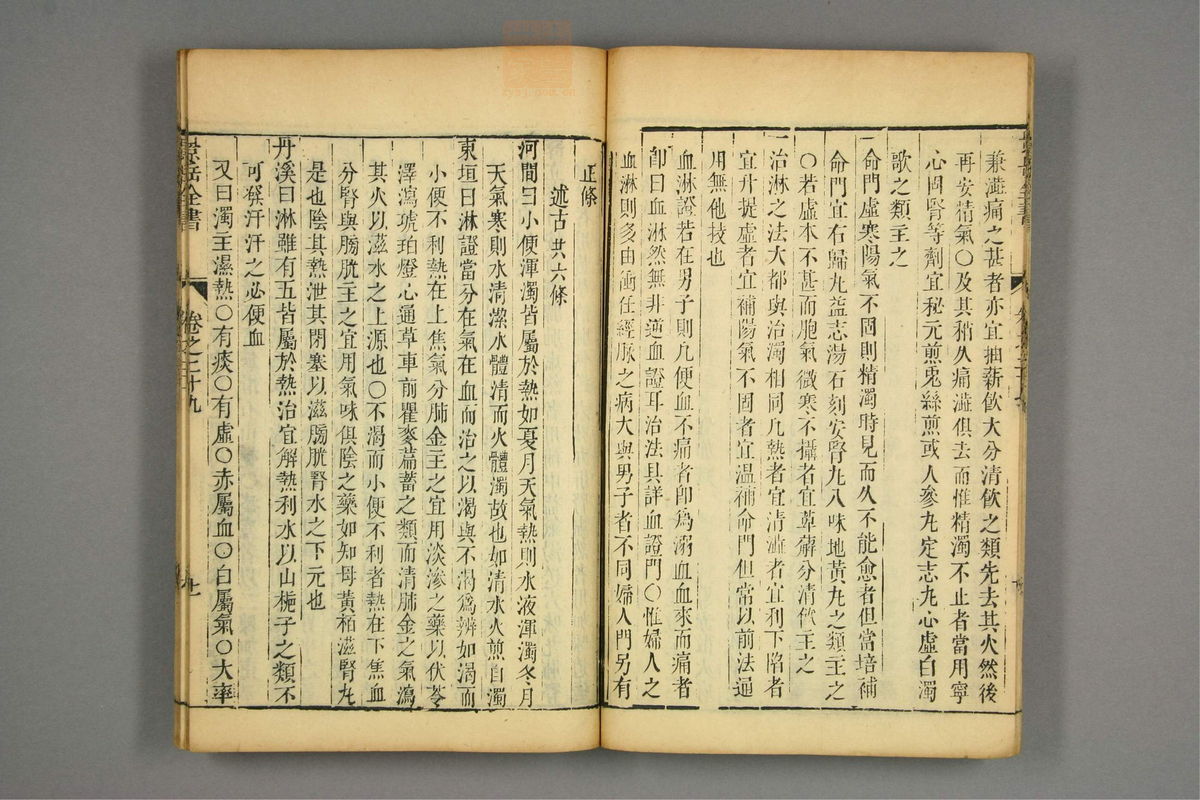 兼澁痛之甚者亦宜抽薪飲大分清飲之類先去其火然後
再安精氣○及其稍久痛澁俱去而惟精濁不止者當用寧
心固腎等劑宜秘元煎兎絲煎或人參丸定志丸心虛白濁
歌之類主之
一命門虛寒陽氣不固則精濁時見而久不能愈者但當培補
命門宜右歸丸益志湯石刻安腎丸八味地黃丸之類主之
○若虛本不甚而胞氣微寒不攝者宜萆薢分清飲主之
一治淋之法大都與治濁相同凡熱者宜清澁者宜利下陷者
宜升提虛者宜補陽氣不固者宜温補命門但當以前法通
用無他技也
血淋證若在男子則凡便血不痛者卽爲溺血血來而痛者
卽曰血淋然無非逆血證耳治法具詳血證門○惟婦人之
血淋則多由衝任經脉之病大與男子者不同婦人門另有
正條
述古 共六條
河間曰小便渾濁皆屬於熱如夏月天氣熱則水液渾濁冬月
天氣寒則水清潔水體清而火體濁故也如清水火煎自濁
東垣曰淋證當分在氣在血而治之以渴與不渴爲辨如渴而
小便不利熱在上焦氣分肺金主之宜用淡滲之藥以伏苓
澤瀉琥珀燈心通草車前瞿麥萹蓄之類而清肺金之氣瀉
其火以滋水之上源也○不渴而小便不利者熱在下焦血
分腎與膀胱主之宜用氣味俱陰之藥如知母黃栢滋腎丸
是也陰其熱泄其閉塞以滋膀胱腎水之下元也
丹溪曰淋雖有五皆屬於熱治宜解熱利水以山梔子之類不
可發汗汗之必便血
又曰濁主濕熱○有痰○有虛○赤屬血○白屬氣○大率
景岳全書
卷之二十九